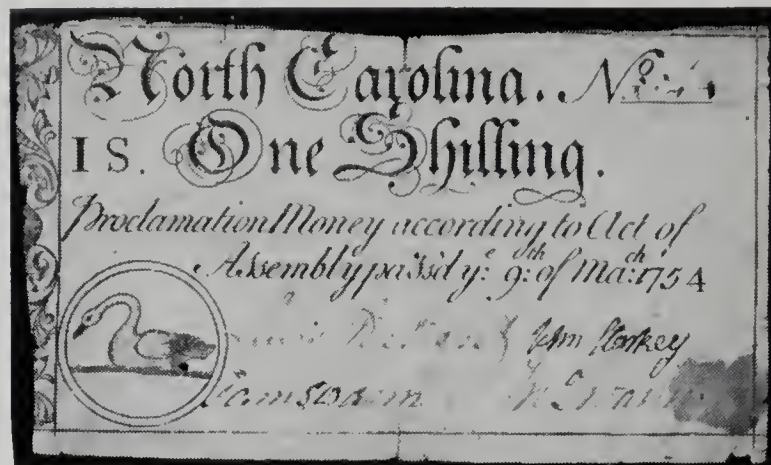 North Carolina. No
1 S. One Shilling.
Proclamation Money according to Act of
Assembly pass'd ye. 9th: of Mach: 1754
John Starkey